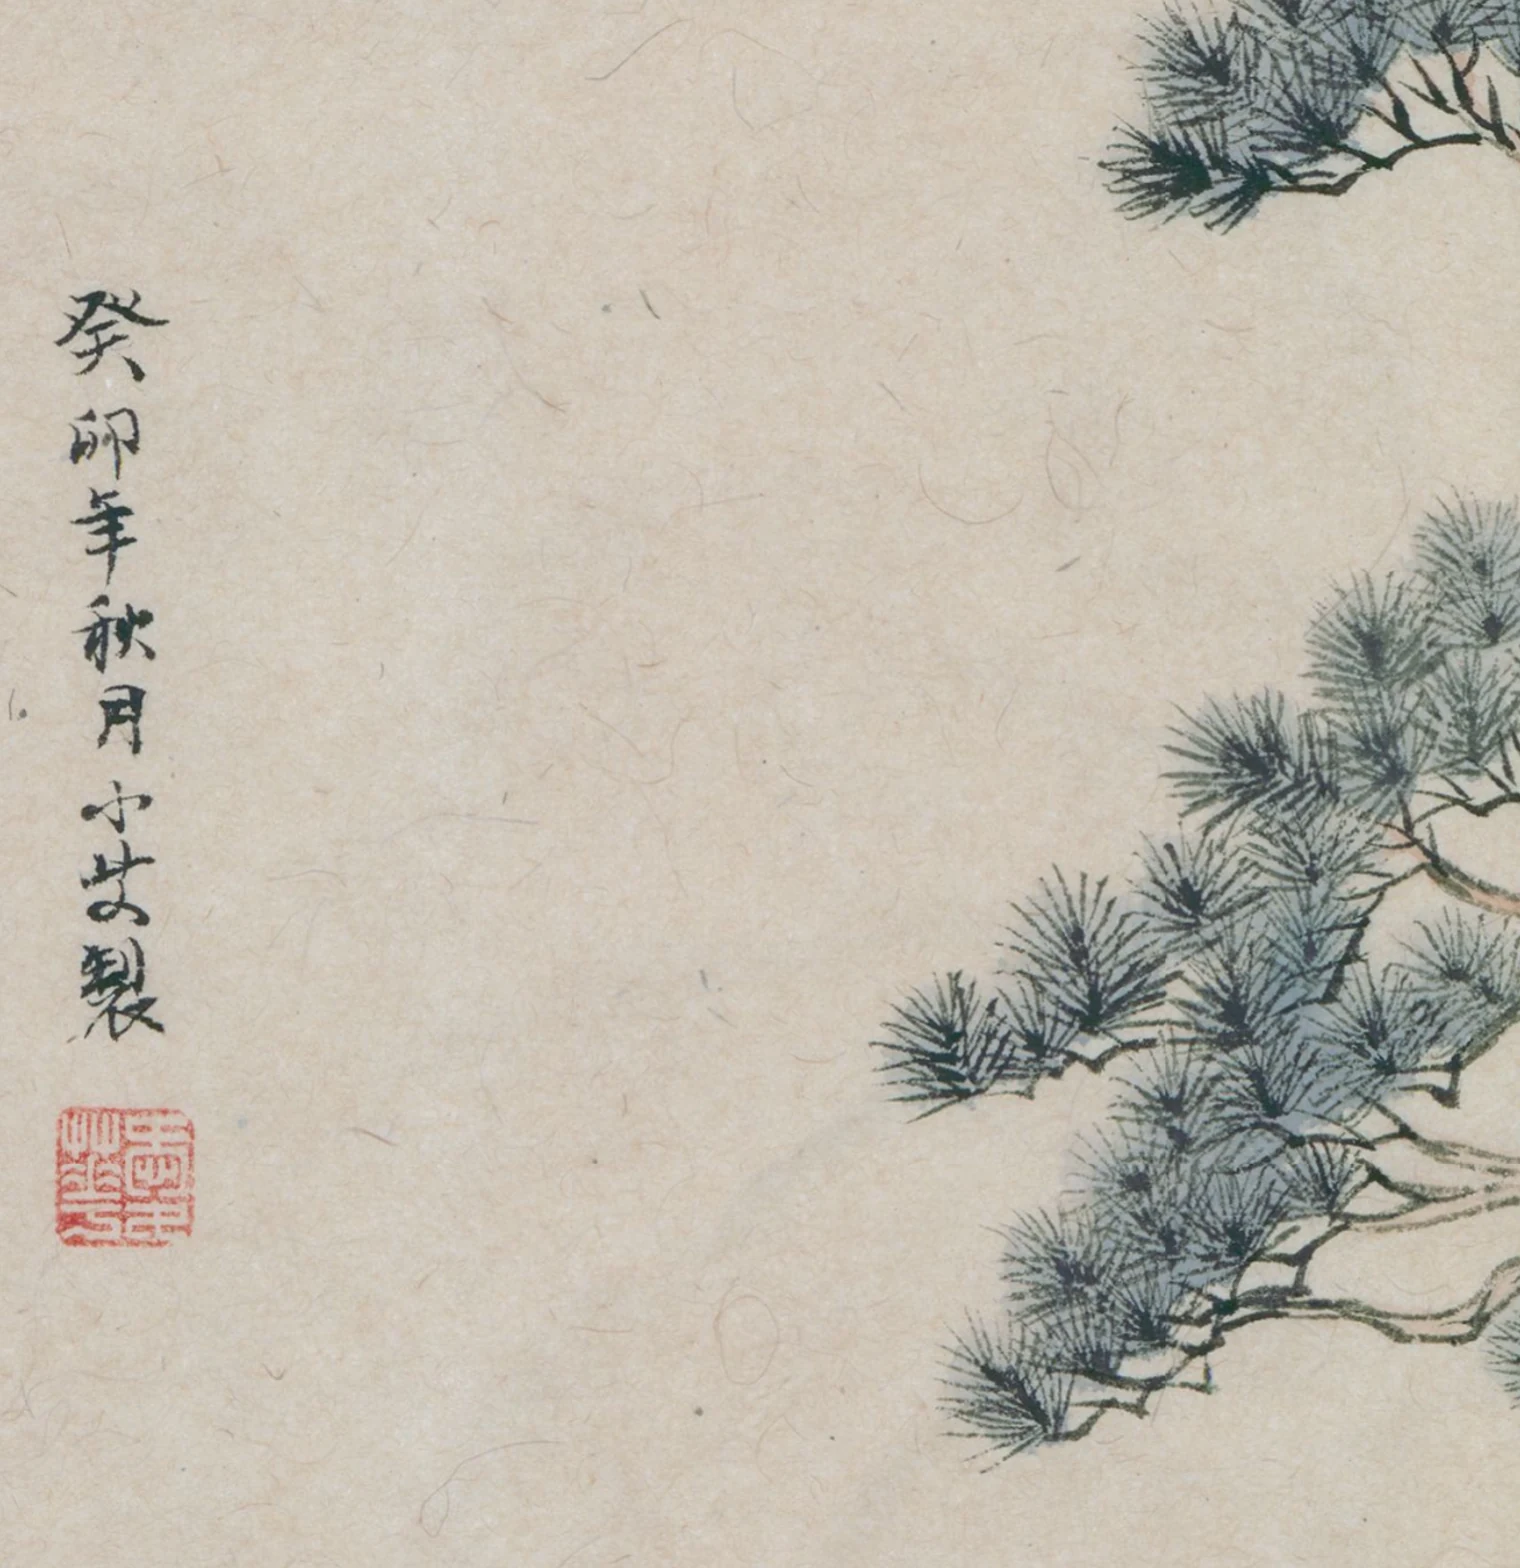 癸卯年秋月小艾製